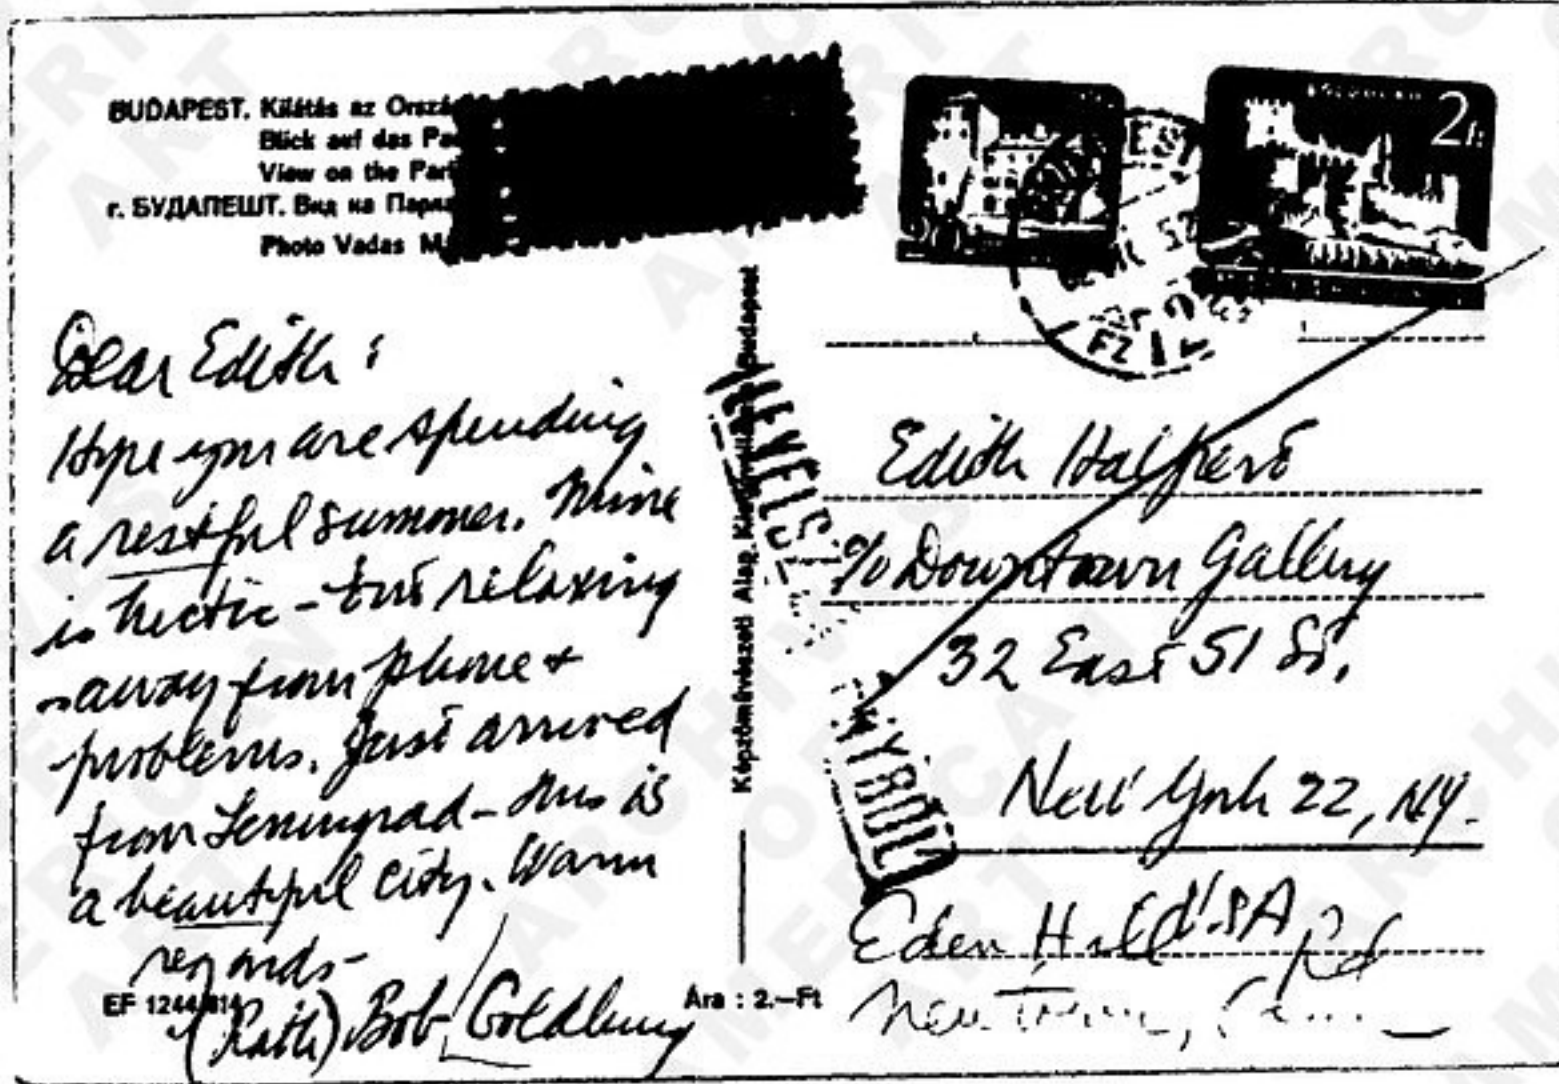 BUDAPEST. Kilátás az Orszá
Blick auf das Pa
View on the Par
г. БУДАПЕШТ. Вид на Парла
Photo Vadas
Dear Edith:
Hope you are spending
a restful summer. Mine
is hectic - but relaxing
- away from phone +
problems. Just arrived
from Leningrad - this is
a beautiful city. Warm
regards -
(Ruth) Bob Goldberg
EF 1244/814
Ára : 2.—Ft
Képzőművészeti Alap Budapest
2
Edith Halpert
c/o Downtown Gallery
32 East 51 St.
New York 22, NY.
USA
Eden Hill Rd
Newtown, Conn